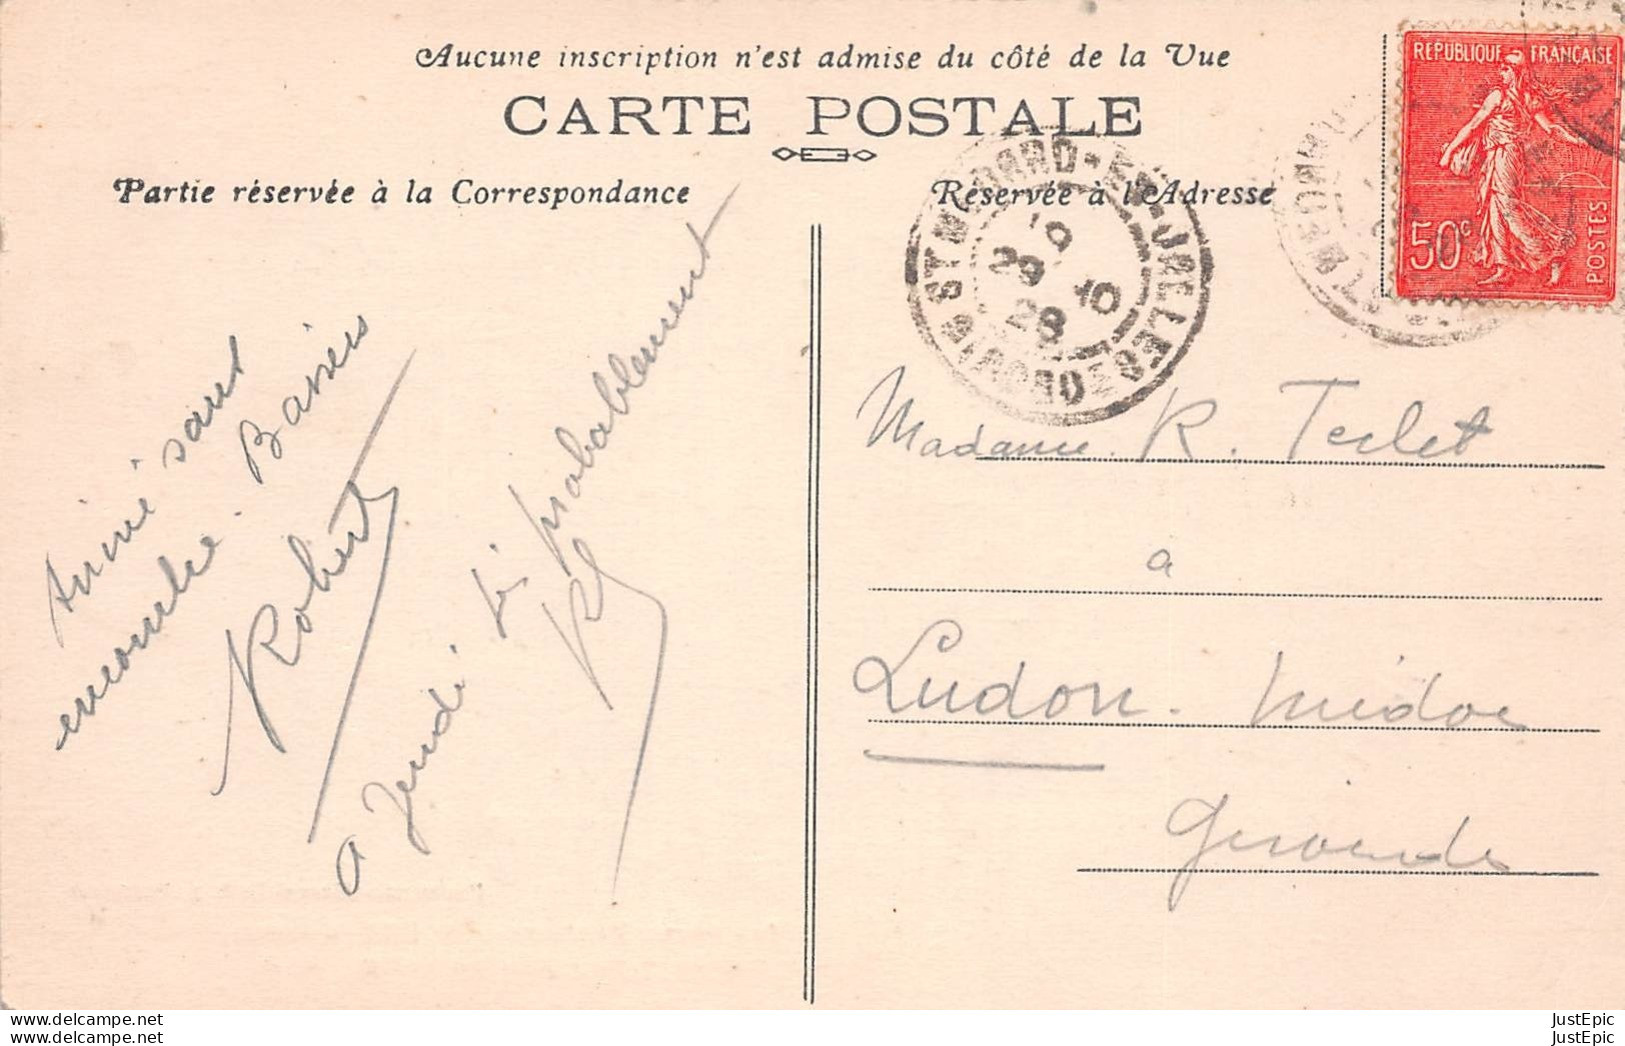 Aucune inscription n'est admise du côté de la Vue
CARTE POSTALE
Partie réservée à la Correspondance
Réservée à l'Adresse
RÉPUBLIQUE FRANÇAISE
50c
POSTES
ST MEDARD-EN-JALLES
GIRONDE
10
9 10
28
Arrivé sans
encombre. Baisers
Robert
A Jeudi probablement
R
Madame R. Terlet
a
Ludon. Médoc
Gironde
www.delcampe.net
www.delcampe.net
JustEpic
JustEpic